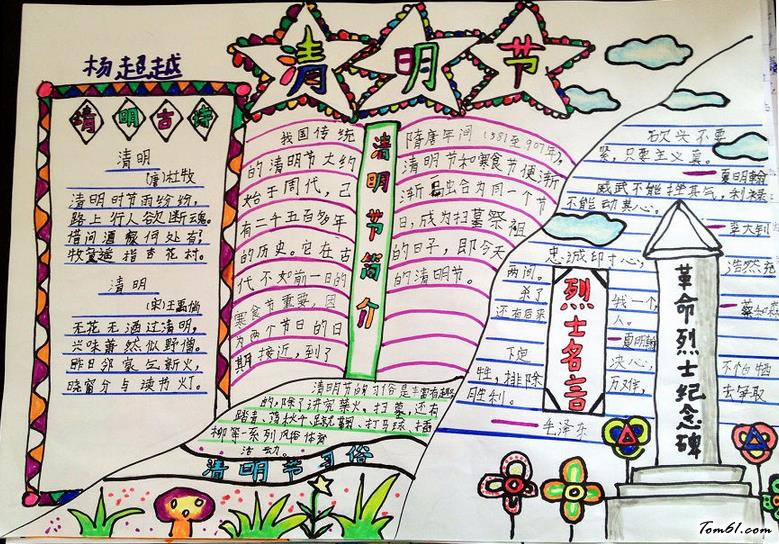 杨超越
清明节
清明古诗
清明
(唐)杜牧
清明时节雨纷纷,
路上行人欲断魂。
借问酒家何处有?
牧童遥指杏花村。
清明
(宋)王禹偁
无花无酒过清明,
兴味萧然似野僧。
昨日邻家乞新火,
晓窗分与读书灯。
清明节简介
我国传统
的清明节大约
始于周代,已
有二千五百多年
的历史。它在古
代不如前一日的
寒食节重要,因
为两个节日的日
期接近,到了
隋唐年间(581至907年),
清明节和寒食节便渐
渐融合为同一个节
日,成为扫墓祭祖
的日子,即今天
的清明节。
清明节的习俗是丰富有趣
的,除了讲究禁火、扫墓,还有
踏青、荡秋千、蹴鞠、打马球、插
柳等一系列风俗体育
活动。
清明节习俗
砍头不要
紧,只要主义真。
夏明翰
威武不能挫其气,利禄
不能动其心。
李大钊
忠诚印寸心,
浩然充
两间。
杀了
我一个,
还有后来
人。
夏明翰
下定
决心,
不怕牺
牲,排除
万难,
去争取
胜利。
毛泽东
烈士名言
革命烈士纪念碑
Tom61.com